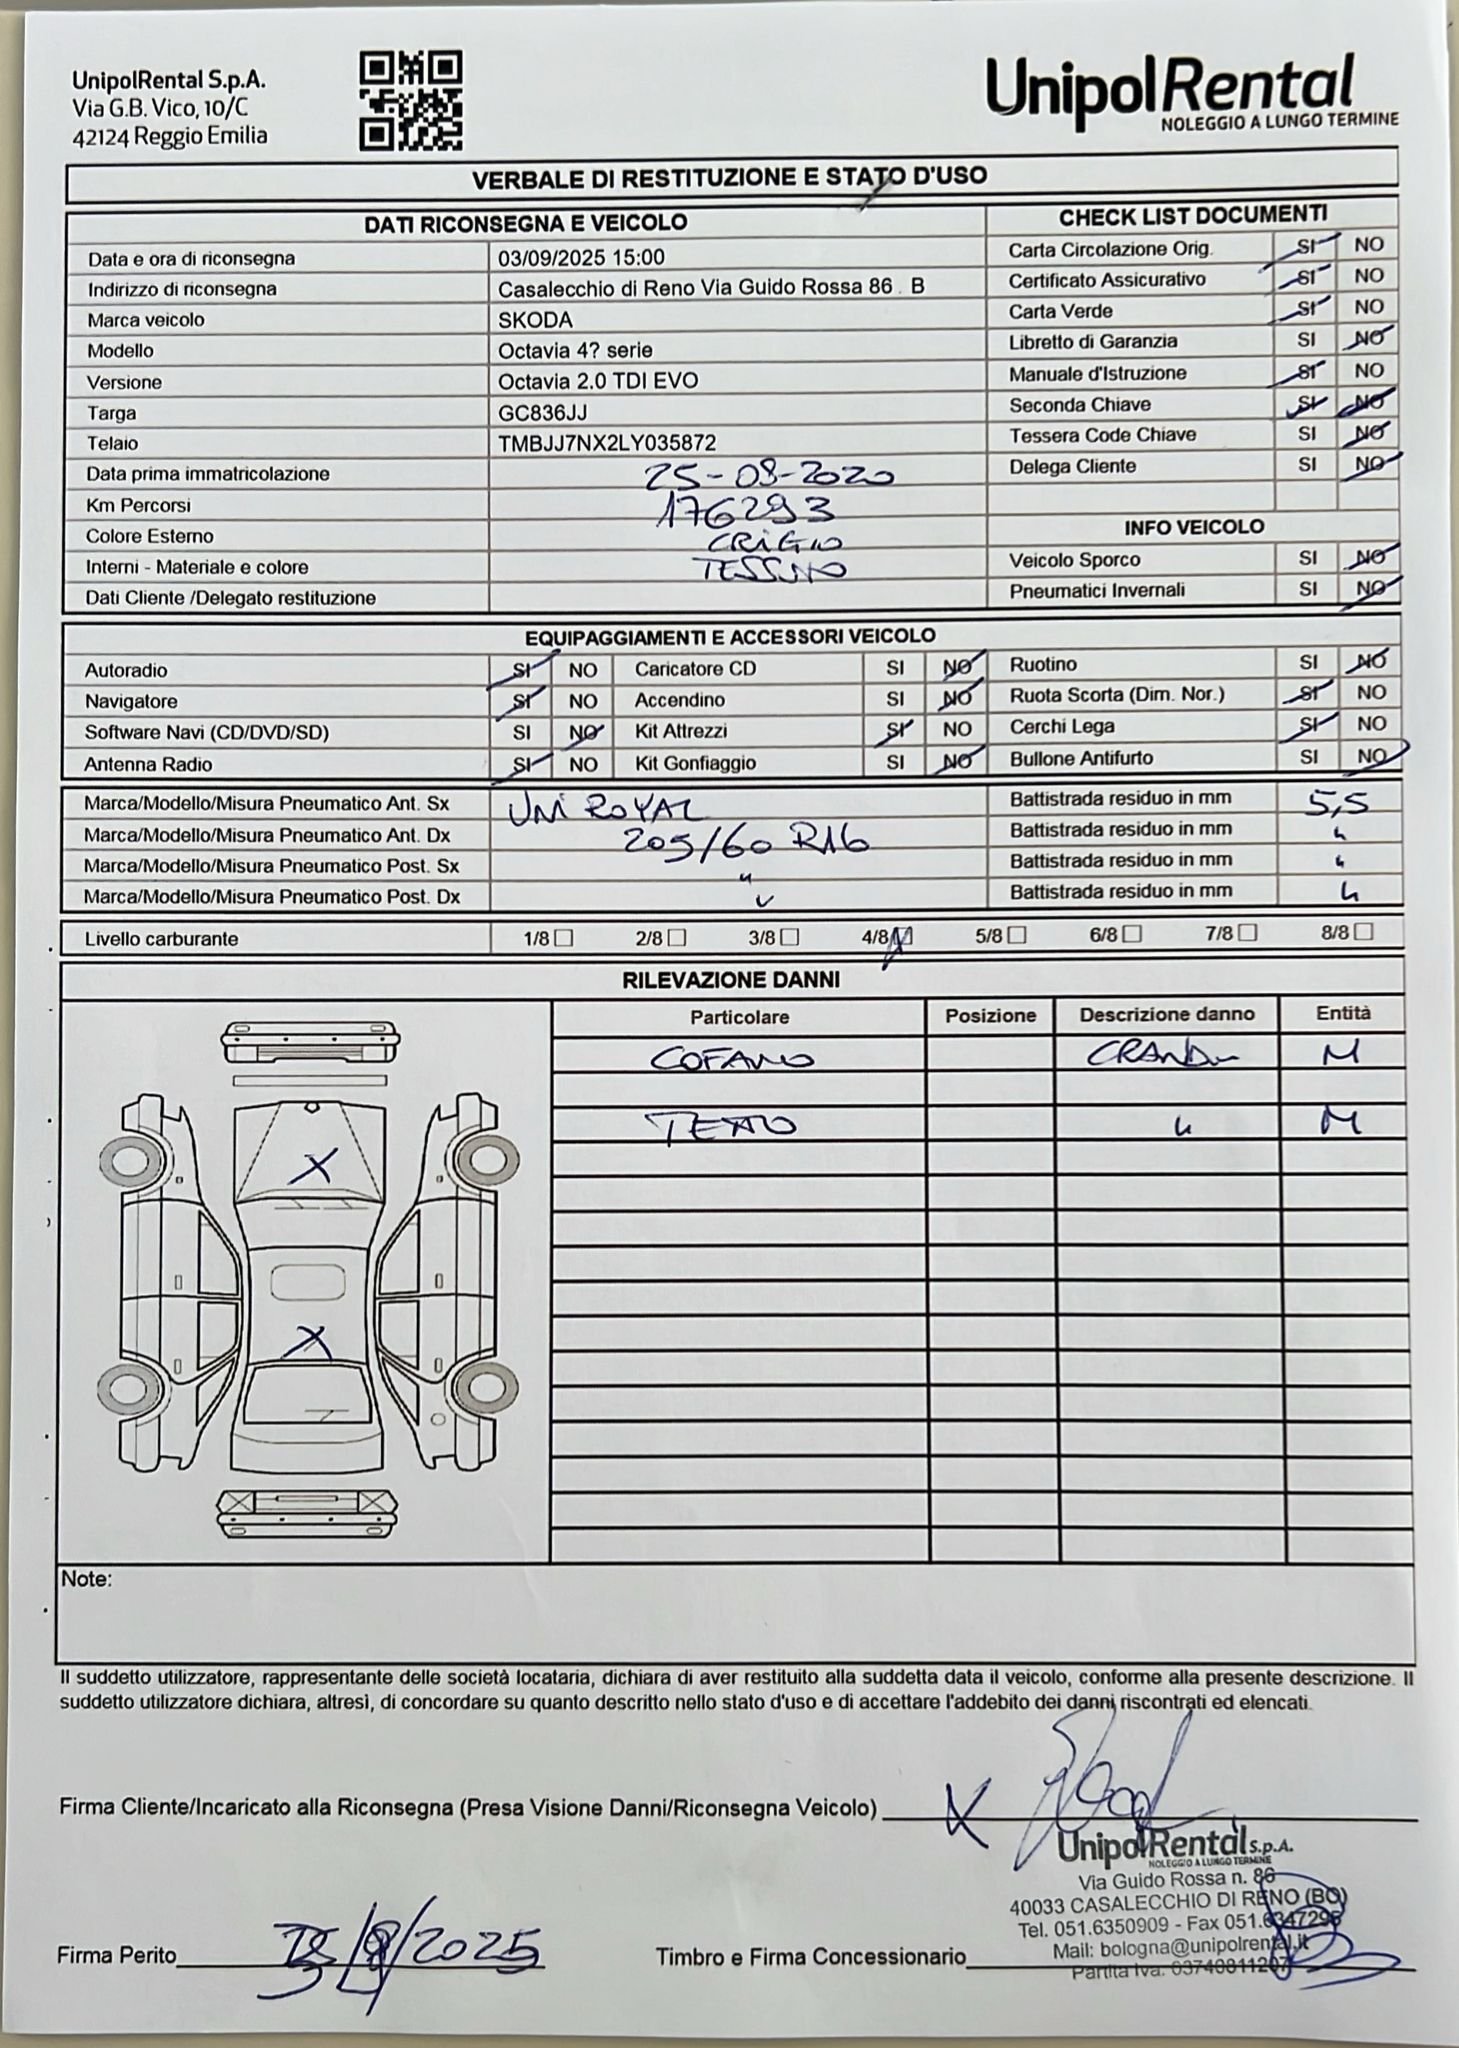 UnipolRental S.p.A.
Via G.B. Vico, 10/C
42124 Reggio Emilia
UnipolRental
NOLEGGIO A LUNGO TERMINE
VERBALE DI RESTITUZIONE E STATO D'USO
DATI RICONSEGNA E VEICOLO
Data e ora di riconsegna 03/09/2025 15:00
Indirizzo di riconsegna Casalecchio di Reno Via Guido Rossa 86 . B
Marca veicolo SKODA
Modello Octavia 4? serie
Versione Octavia 2.0 TDI EVO
Targa GC836JJ
Telaio TMBJJ7NX2LY035872
Data prima immatricolazione 25-08-2020
Km Percorsi 176293
Colore Esterno GRIGIO
Interni - Materiale e colore TESSUTO
Dati Cliente /Delegato restituzione
CHECK LIST DOCUMENTI
Carta Circolazione Orig. SI NO
Certificato Assicurativo SI NO
Carta Verde SI NO
Libretto di Garanzia SI NO
Manuale d'Istruzione SI NO
Seconda Chiave SI NO
Tessera Code Chiave SI NO
Delega Cliente SI NO
INFO VEICOLO
Veicolo Sporco SI NO
Pneumatici Invernali SI NO
EQUIPAGGIAMENTI E ACCESSORI VEICOLO
Autoradio SI NO Caricatore CD SI NO Ruotino SI NO
Navigatore SI NO Accendino SI NO Ruota Scorta (Dim. Nor.) SI NO
Software Navi (CD/DVD/SD) SI NO Kit Attrezzi SI NO Cerchi Lega SI NO
Antenna Radio SI NO Kit Gonfiaggio SI NO Bullone Antifurto SI NO
Marca/Modello/Misura Pneumatico Ant. Sx UNIROYAL Battistrada residuo in mm 5,5
Marca/Modello/Misura Pneumatico Ant. Dx 205/60 R16 Battistrada residuo in mm "
Marca/Modello/Misura Pneumatico Post. Sx " Battistrada residuo in mm "
Marca/Modello/Misura Pneumatico Post. Dx " Battistrada residuo in mm "
Livello carburante 1/8 2/8 3/8 4/8 5/8 6/8 7/8 8/8
RILEVAZIONE DANNI
Particolare Posizione Descrizione danno Entità
COFANO M
TETTO " M
Note:
Il suddetto utilizzatore, rappresentante delle società locataria, dichiara di aver restituito alla suddetta data il veicolo, conforme alla presente descrizione. Il
suddetto utilizzatore dichiara, altresì, di concordare su quanto descritto nello stato d'uso e di accettare l'addebito dei danni riscontrati ed elencati.
Firma Cliente/Incaricato alla Riconsegna (Presa Visione Danni/Riconsegna Veicolo) X
UnipolRental S.p.A.
NOLEGGIO A LUNGO TERMINE
Via Guido Rossa n. 86
40033 CASALECCHIO DI RENO (BO)
Tel. 051.6350909 - Fax 051.6347298
Mail: bologna@unipolrental.it
Partita Iva: 03740811207
Firma Perito 2025
Timbro e Firma Concessionario